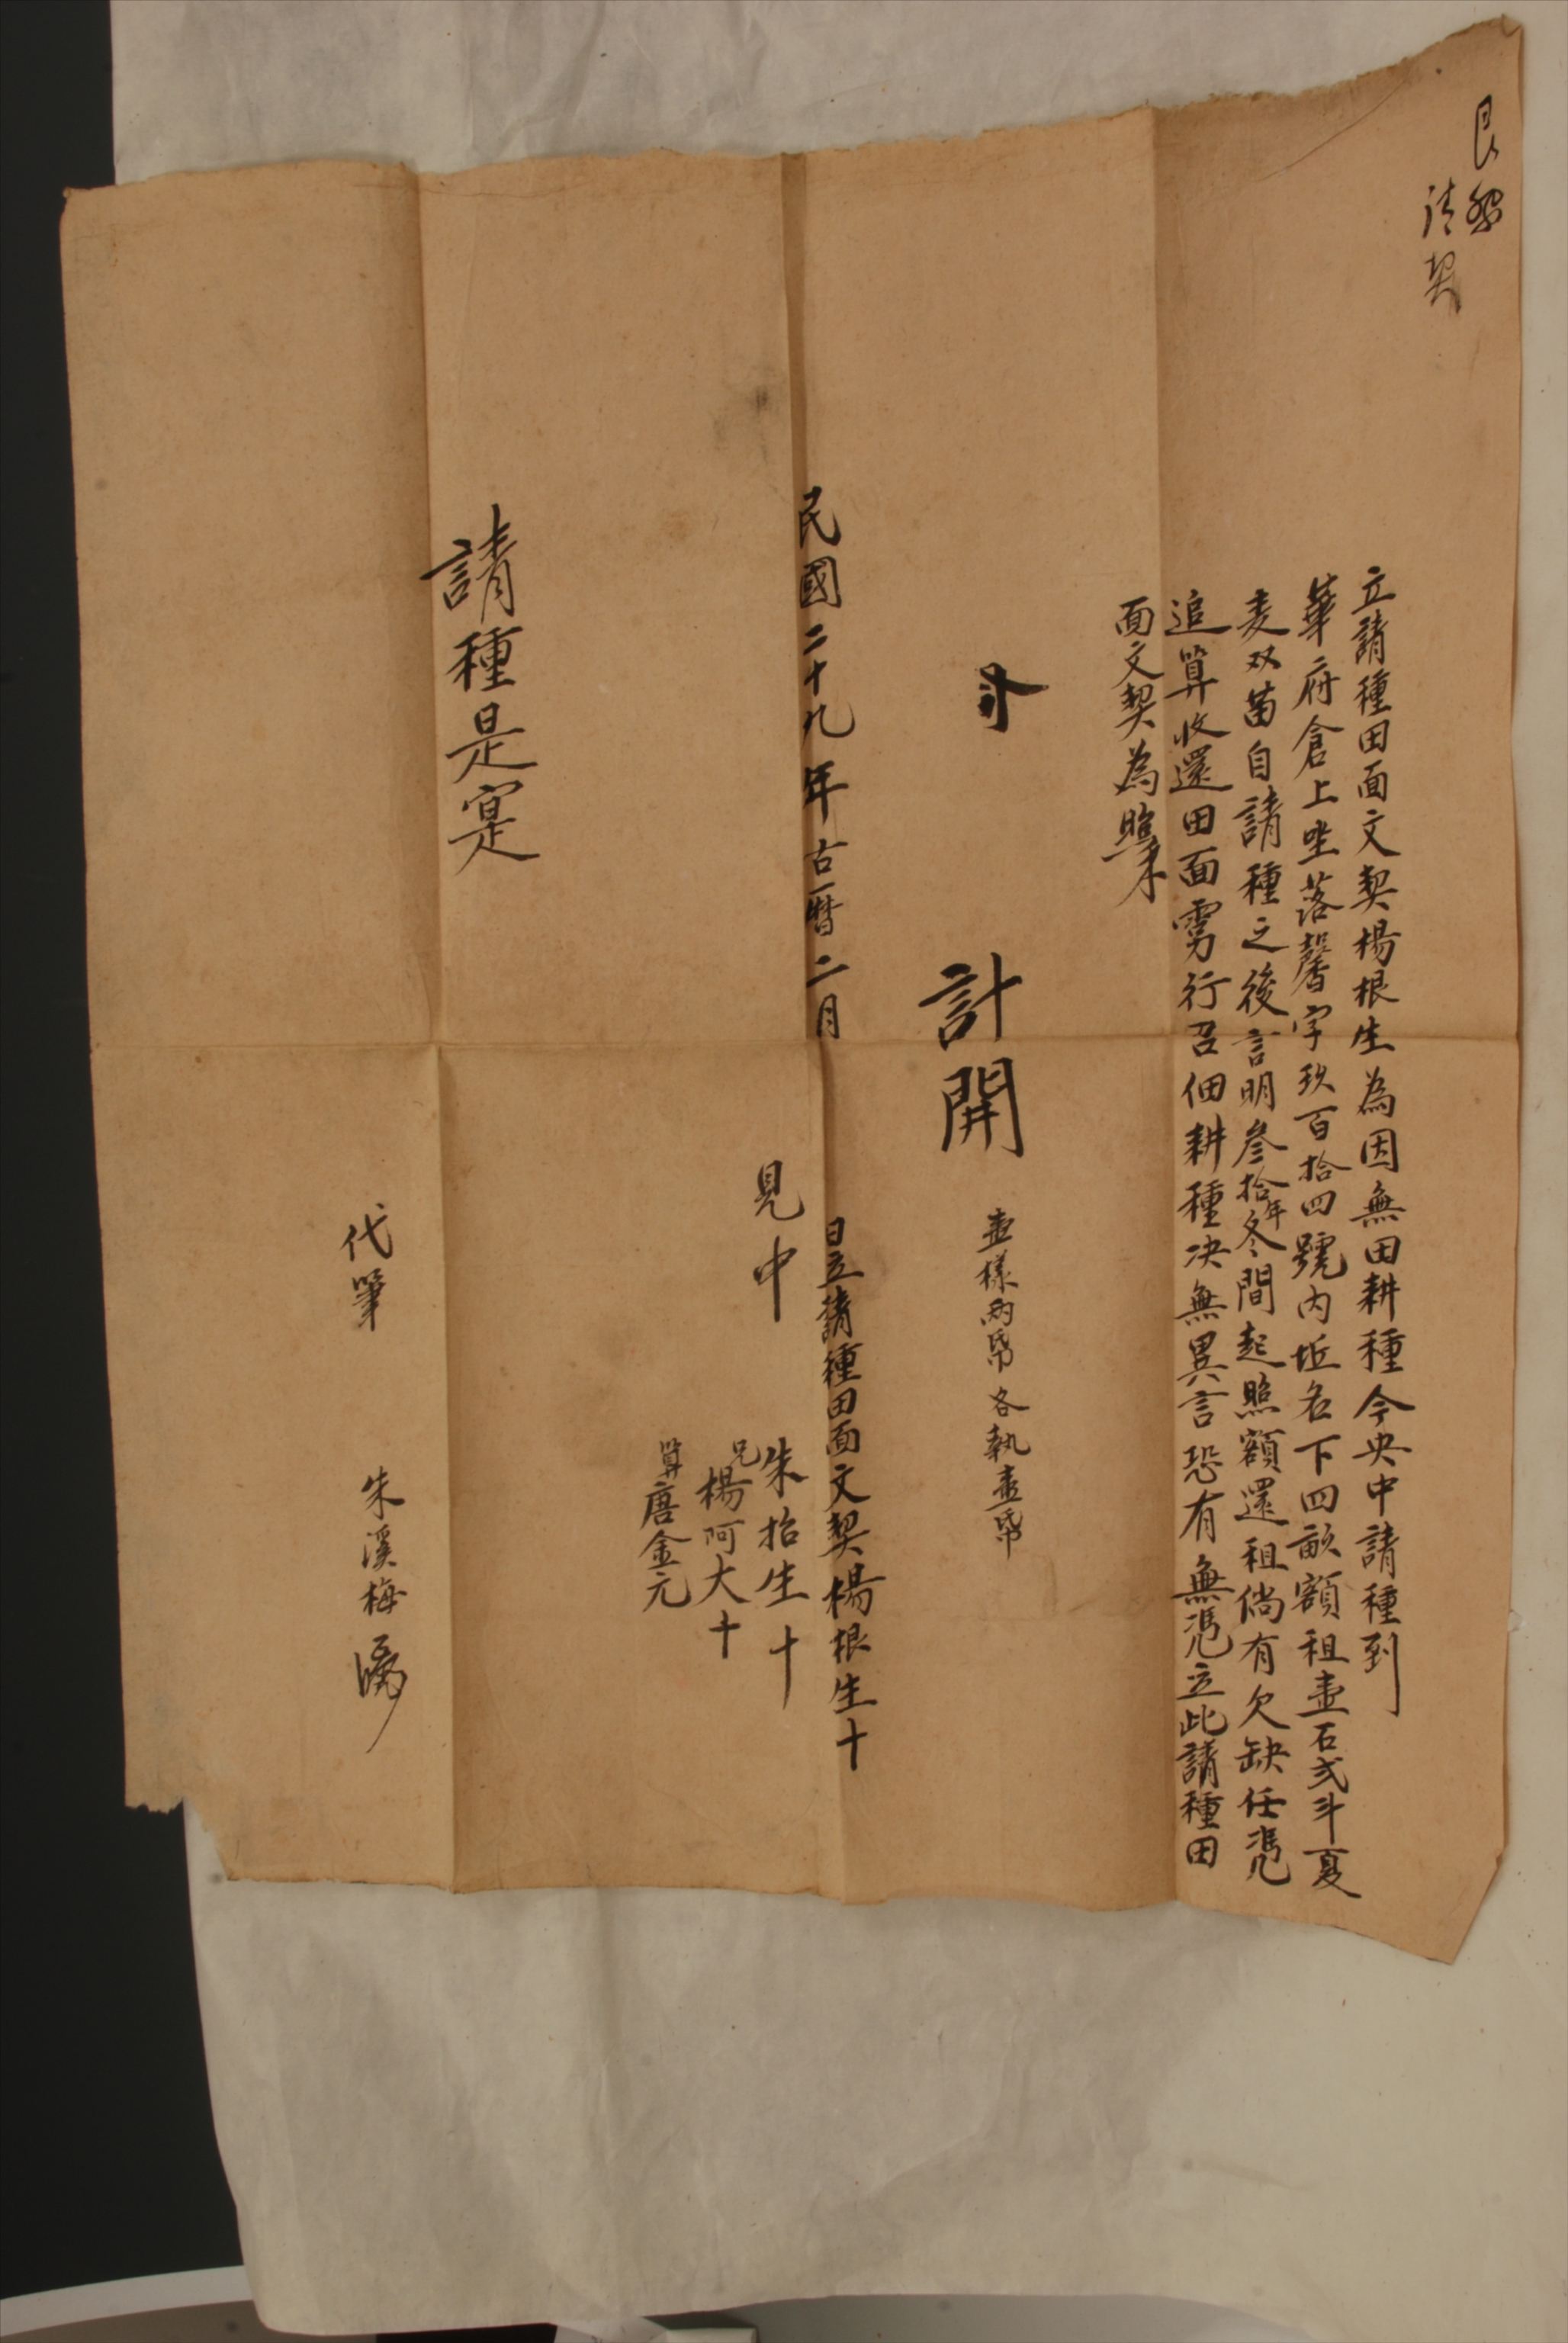 請契
立請種田面文契楊根生為因無田耕種今央中請種到
華府倉上坐落馨字玖百拾四號內坵名下四畝額租壹石弍斗夏
麦双苗自請種之後言明叁拾年冬間起照額還租倘有欠缺任憑
追算收還田面另行召佃耕種决無異言恐有無憑立此請種田
面文契為照
計開 壹樣兩帋各執壹帋
民國二十九年古曆二月 日立請種田面文契楊根生十
見中 朱抬生十
兄楊阿大十
算唐金元
請種是寔
代筆 朱溪梅